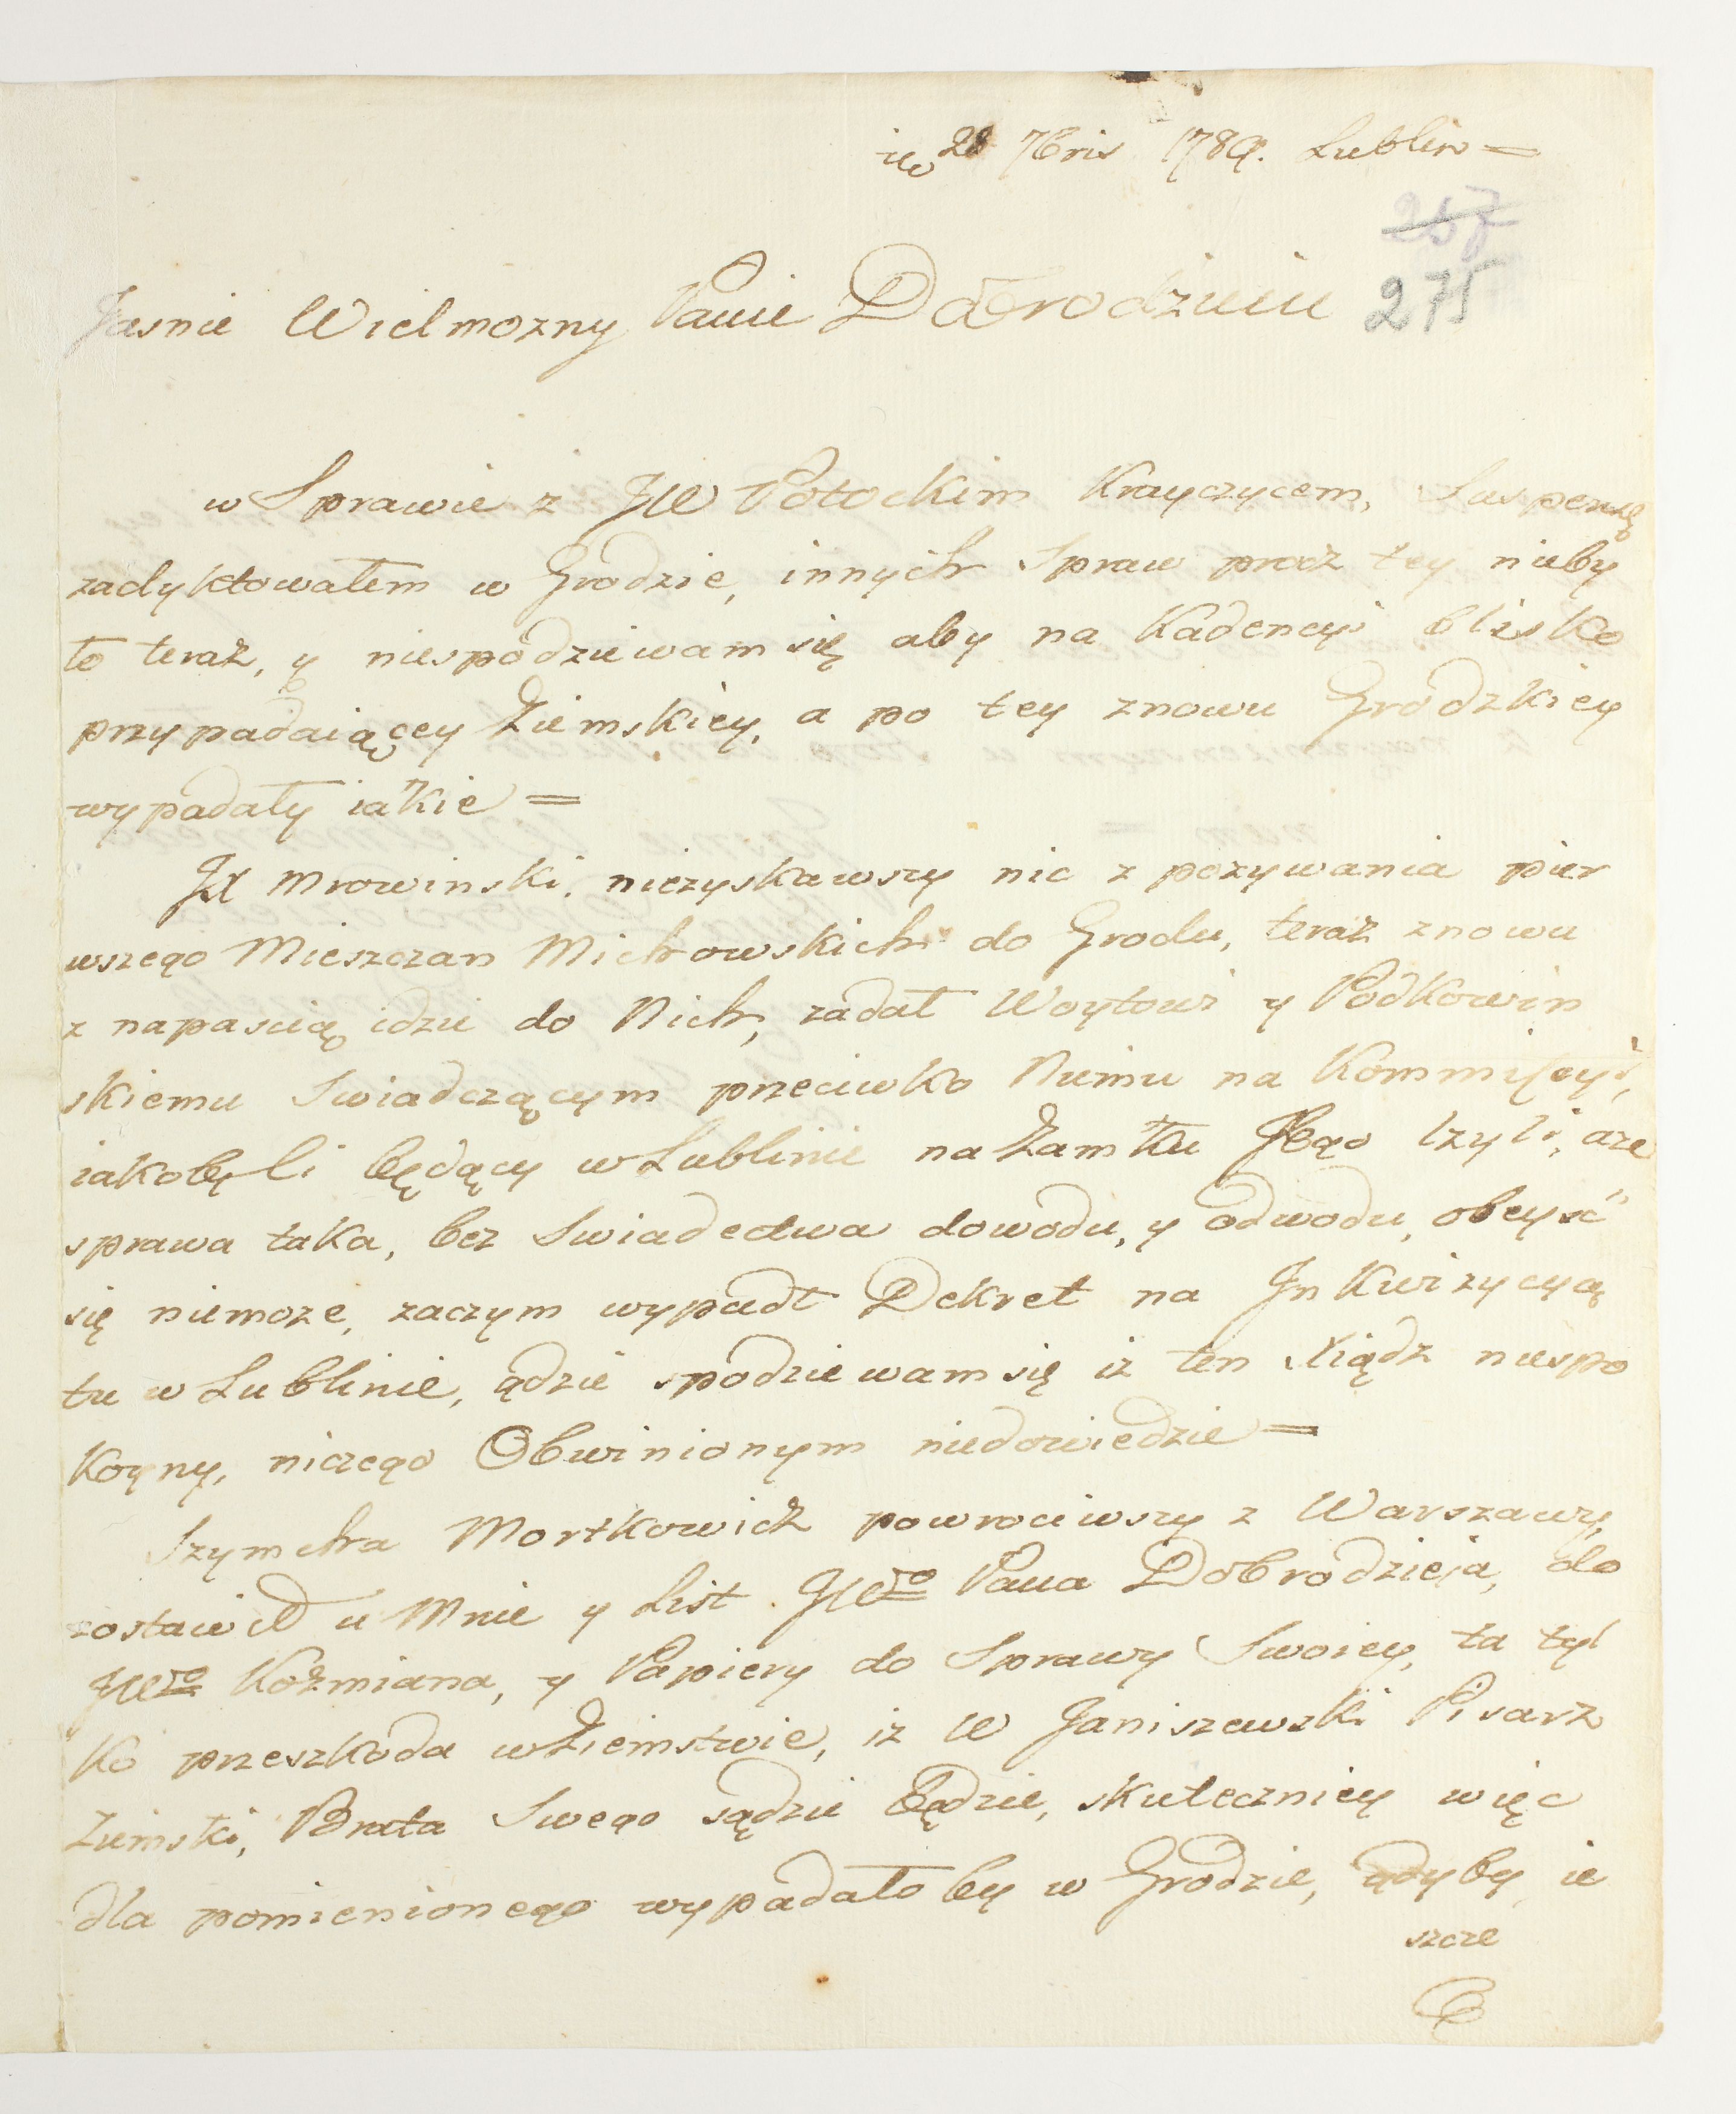 28 7bris 1789. Lublin =
257
275
Jasnie Wielmozny Panie Dobrodzieiu
w Sprawie z JW Potockim Krayczycem, Suspensę
zadyktowałem w Grodzie, innych Spraw procz tey nieby
ło teraz, y niespodziewam się aby na Kadencyi blisko
przypadaiącey Ziemskiey, a po tey znowu Grodzkiey
wypadały iakie =
JX Mrowinski, niezyskawszy nic z pozywania pier
wszego Mieszczan Michowskich do Grodu, teraz znowu
z napascią idzie do Nich, zadał Woytowi y Podkowin
skiemu Swiadczącym przeciwko Niemu na Kommissyi,
iakoby Ci będący w Lublinie na Zamku Jego lzyli, aze
sprawa taka, bez Swiadectwa dowodu, y odwodu, obeyść
się niemoze, zaczym wypadł Dekret na Inkwizycyą
tu w Lublinie, gdzie spodziewam się iz ten Xiądz niespo
koyny, niczego Obwinionym niedowiedzie =
Szymcha Mortkowicz powrociwszy z Warszawy,
zostawił u Mnie y List JWgo Pana Dobrodzieja, do
JWgo Koźmiana, y Papiery do Sprawy Swoiey, ta tyl
ko przeszkoda w Ziemstwie, iz W Janiszewski Pisarz
Ziemski, Brata Swego sądzie będzie, skuteczniey więc
dla pomienionego wypadałoby w Grodzie, gdyby ie
szcze